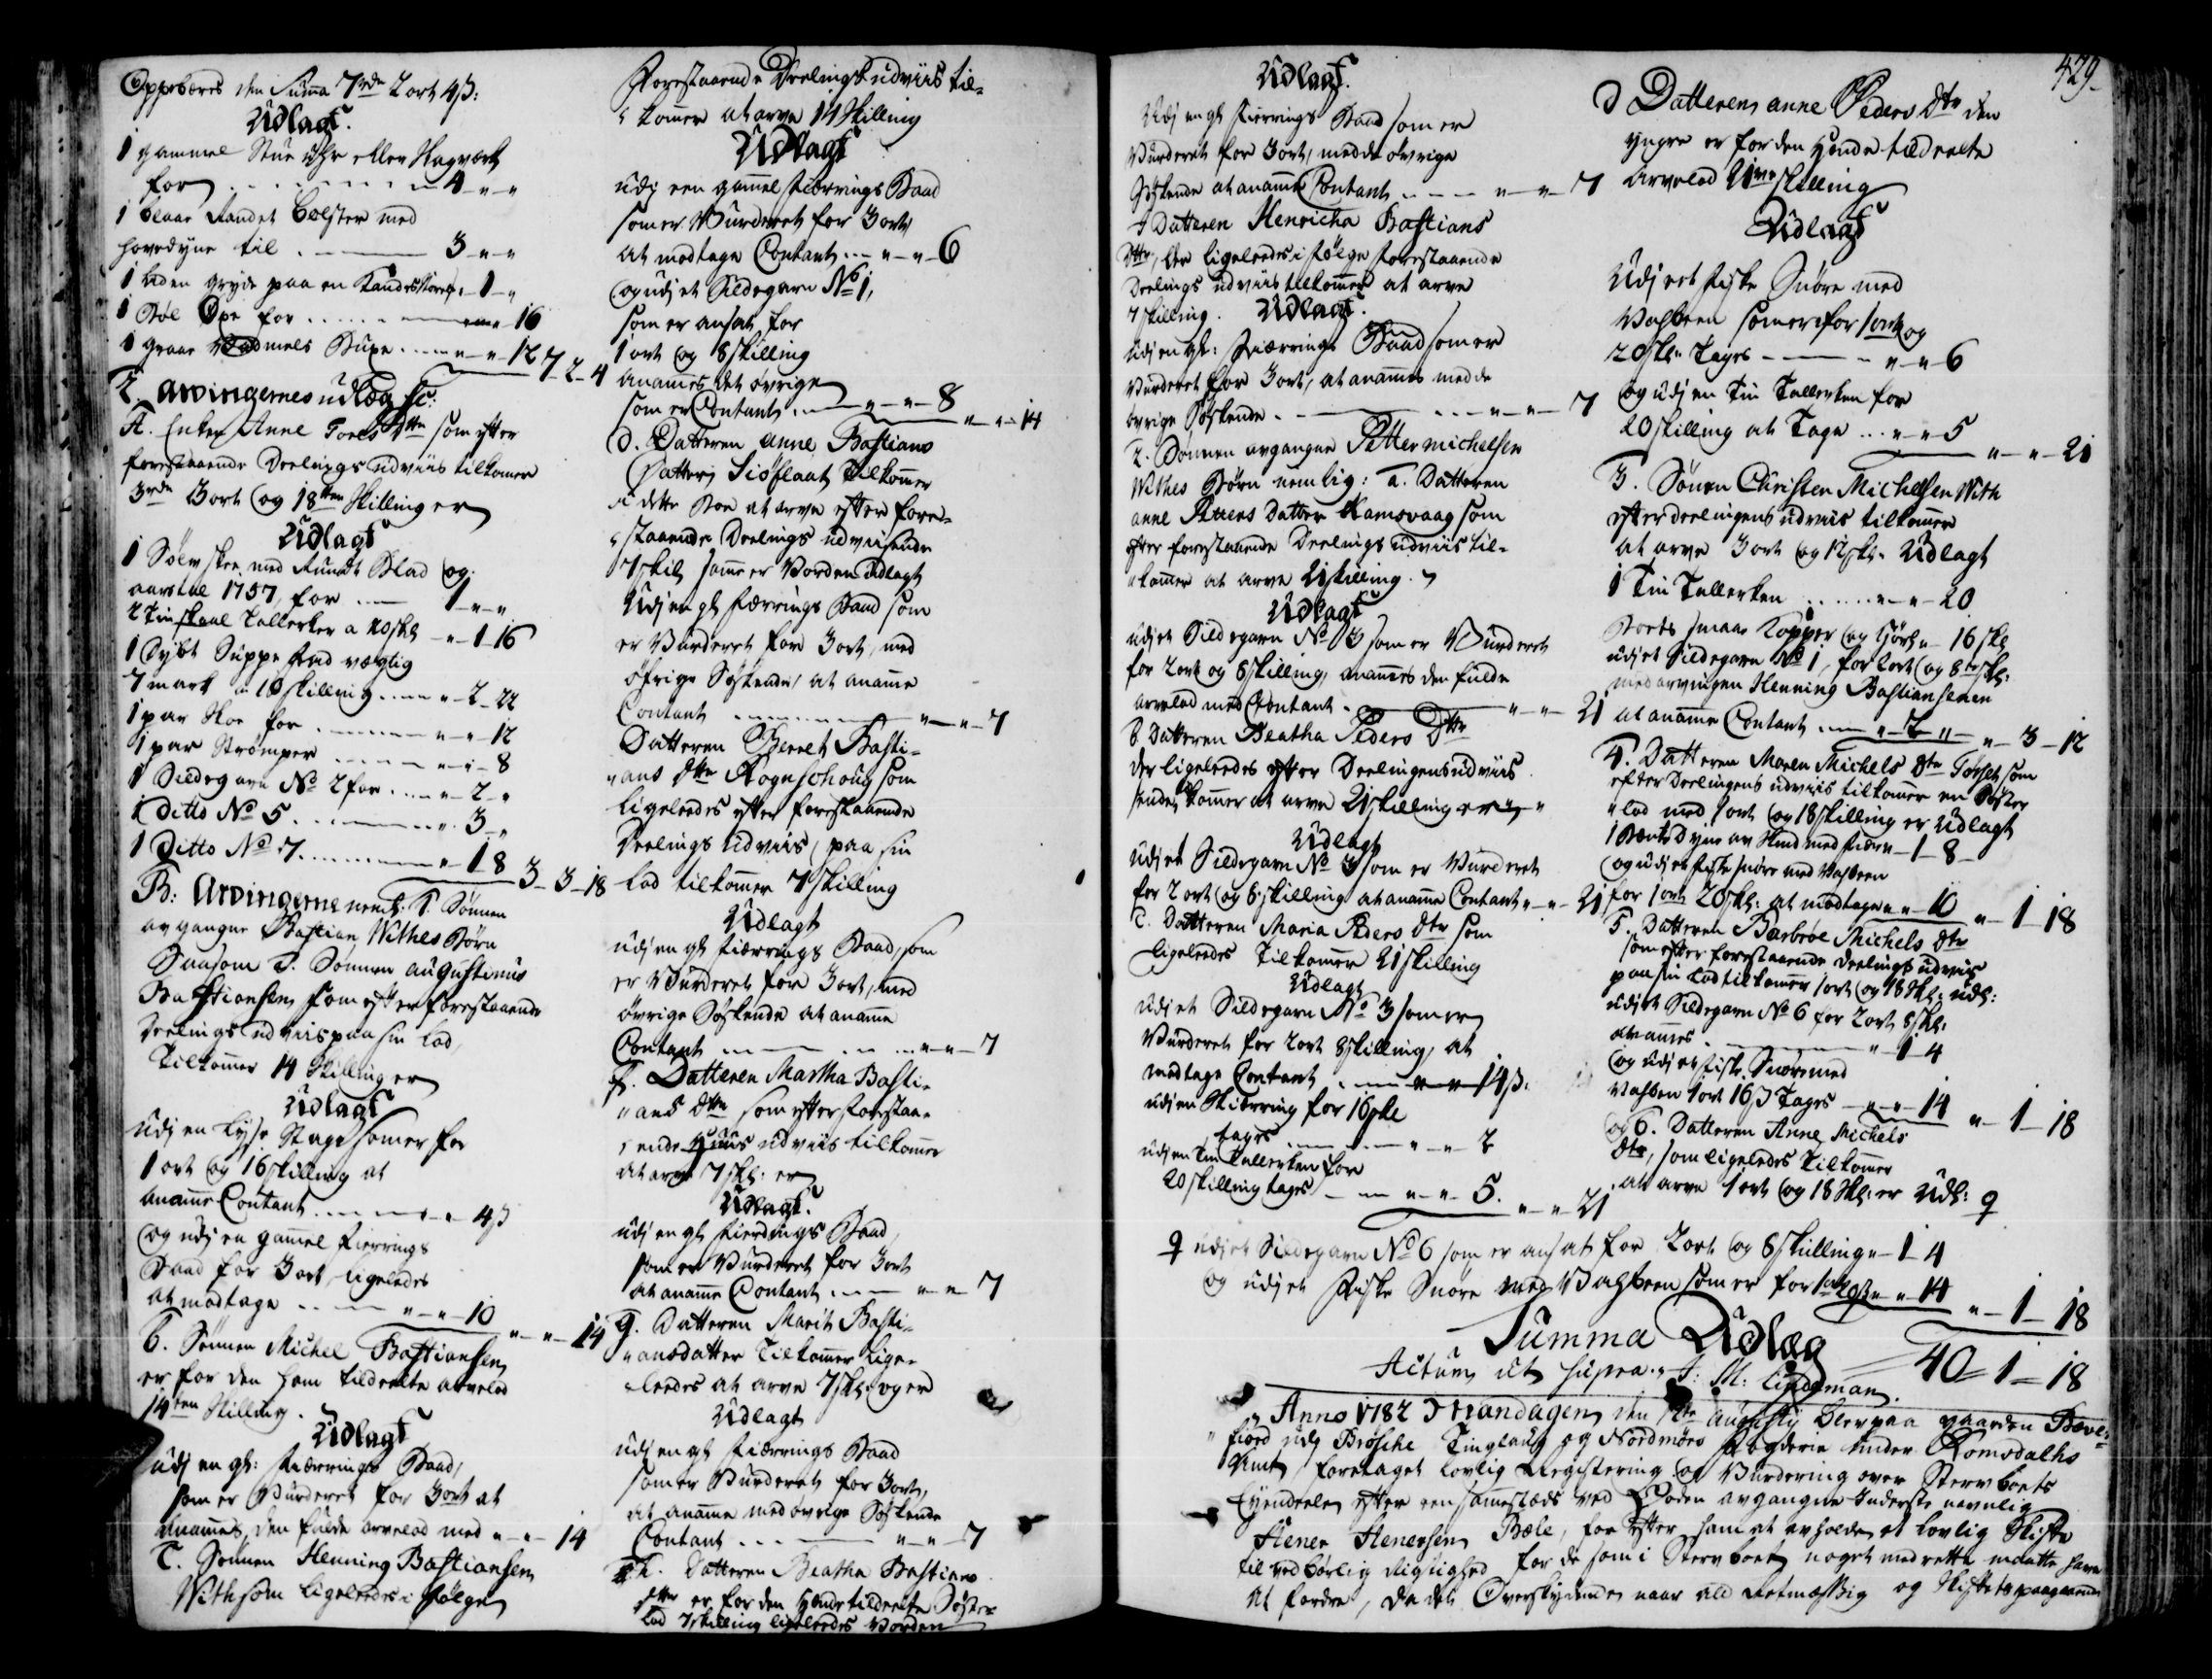 Oppebæres den Summa 7rdr 2 ort 4 s:
Udlagt.
1 gammel Stue Uhr eller Slagværk
for - - - - - 4 - " - "
1 blaae Randet bolster med
hovedyne til - - - 3 - " - "
1 liden gryde paa en 1 - "
1 Øxe for - - - - - " - " - 16
1 graae Vadmels Buxe - - - " - " - 12 7 - 2 - 4
2. arvingernes udlæg sc:
A. Enken Anne Dtter som efter
forestaaende Deelings udviis tilkomer
3rdr 3 ort og 18ten Skilling er
Udlagt
1 Sølv skee med Rundt Blad og
aarstal 1757, for - - 1 - " - "
2 Tin skaal Tallerker a 20 skl - " - 1 - 16
1 Dybt Suppe fad vægtig
7 mark a 10 skilling - - - " - 2 - 22
1 par Skoe for - - - " - " - 12
1 par Strømper - - - " - " - 8
1 Sildegarn No 2 for - - - " - 2 - "
1 ditto No 5 - - - " 3 - "
1 Ditto No 7 - - - " - 1 8 3 - 3 - 18
B: Arvingerne neml: 1. Sønnen
avgangne Bastian Withes Børn
Saasom a. Sønnen augustinus
Bastiansen som efter forestaaende
Deelings udviis paa sin Lod,
Tilkomer 14 Skilling er
Udlagt
Udj en Lyse Stage som er for
1 ort og 16 skilling at
anamme Contant - - - " - " - 4 s
og udj en gamel fierrings
Baad for 3 ort ligeledes
at modtage - - - " - " - 10
" - " - 14
b. Sønnen Michel Bastiansen
er for den ham tildeelte arvelod
14ten Skilling.
Udlagt
udj en gl: Fiærrings Baad,
som er Vurderet for 3 ort at
anammes, den fulde arvelod med " - " - 14
C. Sønnen Henning Bastiansen
With som ligeledes i følge
Forestaaende Deelings udviis til-
komer at arve 14 Skilling
Udlagt
udj een gamel Fiærrings Baad
som er Vurderet for 3 ort
at modtage Contant - - " - " - 6
og udj et Sildegarn No 1,
som er ansat for
1 ort og 8 skilling
anames det øvrige
som er Contant - - - " - " - 8
" - " - 14
d. Datteren anne Bastians
Datter Siøflaat Tilkomer
i dette Boe at arve efter fore-
staaende Deelings udviisende
7 skil, som er Vorden Udlagt
Udj en gl fierrings Baad som
er Vurderet for 3 ort, med
øfrige Søskende, at anamme
Contant - - - " - " - 7
Datteren Berret Basti-
ans Dtter som
ligeledes efter forestaaende
Deelings udviis, paa sin
Lod tilkomer 7 skilling
Udlagt
udj en gl fiærrings Baad, som
er Vurderet for 3 ort, med
øvrige Søskende at anamme
Contant - - - " - " - 7
f. Datteren Martha Basti-
ans Dtter som efter forestaa-
ende udviis tilkomer
at arve 7 skl: er
Udlagt.
udj en gl Fierdings Baad,
som er Vurderet for 3 ort
at anamme Contant - - - " - " - 7
g. Datteren Marit Basti-
ansdatter Tilkomer lige-
leedes at arve 7 skl: og er
Udlagt
udj en gl fiærrings Baad
som er Vurderet for 3 ort,
at anamme med øvrige Søskende
Contant - - - " - " - 7
h. Datteren Beatha Bastians
dtter er for den Hende tildeelte Søster
Lod 7 skilling ligeleedes Vorden
Udlagt.
Udj en gl fierrings Baad som er
Vurderet for 3 ort, med de øvrige
Søskende at anamme Contant - - - " - " - 7
Datteren Henricha Bastians
Dtter, der ligeleedes i følge forestaaende
Deelings udviis tilkommer at arve
7 skilling. Udlagt.
udj en gl: fiærrings Baad som er
Vurderet for 3 ort, at anames med de
øvrige Søskende - - - " - " - 7
2. Sønnen avgangne Petter Michelsen
Withes Børn nemlig: a. Datteren
anne Petters Datter Ramsvaag som
efter forestaaende Deelings udviis til-
kommer at arve 21 skilling.
Udlagt
udj et Sildegarn No 3 som er Vurderet
for 2 ort og 8 skilling, anames den fulde
arvelod med Contant - - - " - " - 21
b. Datteren Beatha Peders Dtter
der ligeleedes efter Deelingens udviis
ende, tilkommer at arve 21 skilling er
Udlagt
udj et Sildegarn No 3 som er Vurderet
for 2 ort og 8 skilling at anamme Contant " - " - 21
C. Datteren Maria Peders Dtr som
ligeleedes Tilkomer 21 skilling
Udlagt
udj et Sildegarn No 3 som er
Vurderet for 2 ort 8 skilling, at
modtage Contant - - - " - " - 14 s:
udj en for 16 skl
tages - - - " - " - 2
udj en Tin Tallerken for
20 skilling tages - - - " - " - 5.
" - " - 21
429.
d Datteren anne Peders Dtr den
yngre er for den Hende tildeelte
arvelod 21ve skilling
Udlagt
Udj et fiske Snøre med
Vaßteen som er for 1 ort og
20 skl. Tages - - - " - " - 6
og udj en Tin Tallerken for
20 skilling at Tage - - - " - " - 5
" - " - 21
3. Sønnen Christen Michelsen With
efter deelingens udviis tilkommer
at arve 3 ort og 12 skl. Udlagt
1 Tin Tallerken - - - " - " - 20
Boets smaae Kopper og " - 16 skl
udj et Sildegarn No 1, for 1 ort og 8te skl:
med arvingen Henning Bastiansen
at anamme Contant - - - " - " - 3 - 12
4. Datteren Maren Michels Dtr som
efter Deelingens udviis tilkomer en Søster
lod med 1 ort og 18 skilling er Udlagt
1 Bænke dyne av Skind med fiær - 1 - 8 -
og udj en fiske snøre med Vaßteen
for 1 ort 20 skl: at modtage " - " - 10
" - 1 - 18
5. Datteren Barbroe Michels Dtr
som efter forestaaende Deelings udviis
paa sin Lod tilkommer 1 ort og 18 skl: udl:
udj et Sildegarn No 6 for 2 ort 8 skl:
anammes - - - " - 1 - 4
og udj et fiske Snøre med
Vaßteen 1 ort 16 s Tages - " - " - 14
" - 1 - 18
og 6. Datteren Anne Michels
Dtr, som ligeledes Tilkomer
at arve 1 ort og 18 Skl: er Udl:
udj et Sildegarn No 6 som er ansat for 2 ort og 8 skilling " - 1 4
og udj et Fiske Snøre med Vaßteen som er for 1 ort 20 s " - " - 14
" - 1 - 18
Summa Udlæg
40 - 1 - 18
Actum ut supra. J: M: Lindeman.
Anno 1782 Mandagen den 12te Augustij blev paa gaarden Bæver-
fiord udj Brøske Tinglaug og Nordmørs Fogderie under Romsdalhs
Amt, foretaget lovlig Registering og Vurdering over Sterv boets
Eyendeele efter een sammestæds ved Døden avgangne Inderste navnlig
Stener Stenersen Bæle, for efter ham at avholde et lovlig Skifte
til ved børlig Rigtighed for de som i Sterv boet noget med rette maatte have
at fordre, da det Overskydende naar all Retmæssig og Skifte